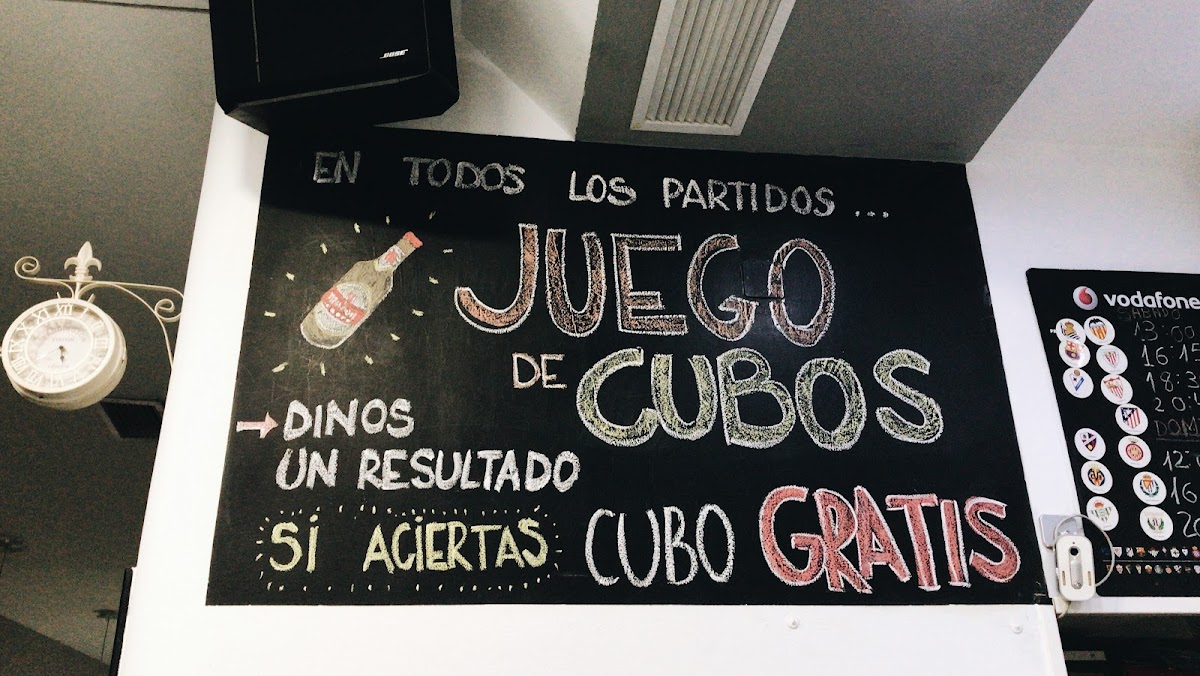 BOSE
EN TODOS LOS PARTIDOS ...
JUEGO
DE CUBOS
→ DINOS
UN RESULTADO
SI ACIERTAS CUBO GRATIS
vodafone
SÁBADO
13:00
16:15
18:3
20:4
DOM
12:
16
2